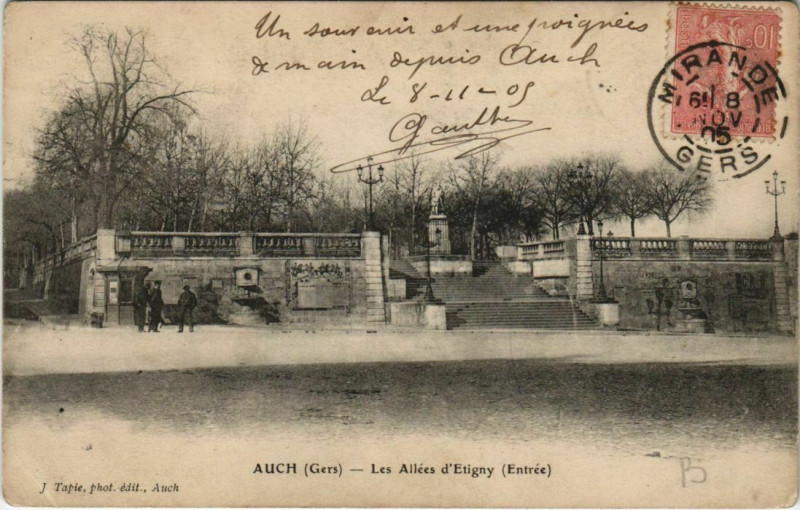 Un souvenir et une poignée
de main depuis Auch
Le 8-11-05
Gauthé
10
MIRANDE
8
NOV
05
GERS
AUCH (Gers) — Les Allées d'Etigny (Entrée)
J Tapie, phot. édit., Auch
B